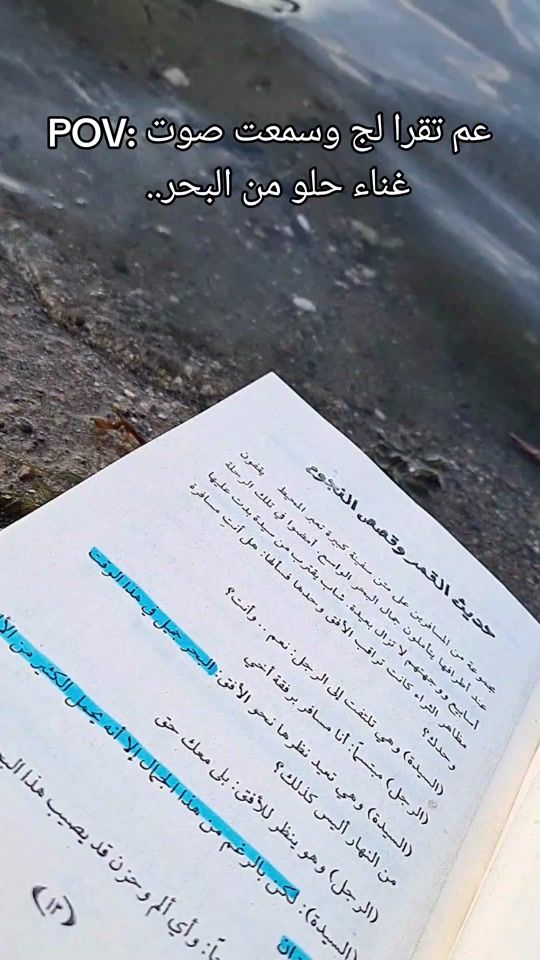 POV: عم تقرا لج وسمعت صوت
غناء حلو من البحر..
حديث القمر وقصص النجوم
مجموعة من المسافرين على متن سفينة كبيرة تعبر المحيط يقفون
عند أطرافها يتأملون جمال البحر الواسع. أمضوا في تلك الرحلة
أسابيع ووجهتهم لا تزال بعيدة. شاب يقترب من سيدة بدت عليها
مظاهر الثراء كانت تراقب الأفق وحدها فسألها: هل أنتِ مسافرة
وحدك؟
(السيدة) وهي تلتفت إلى الرجل: نعم .. وأنت؟
(الرجل) مبتسماً: أنا مسافر برفقة أخي
(السيدة) وهي تعيد نظرها نحو الأفق: البحر جميل في هذا الوقت
من النهار أليس كذلك؟
(الرجل) وهو ينظر للأفق: بلى معك حق
(السيدة): لكن بالرغم من هذا الجمال إلا أنه يحمل الكثير من
وأي ألم وحزن قد يصيب هذا
(١٣)